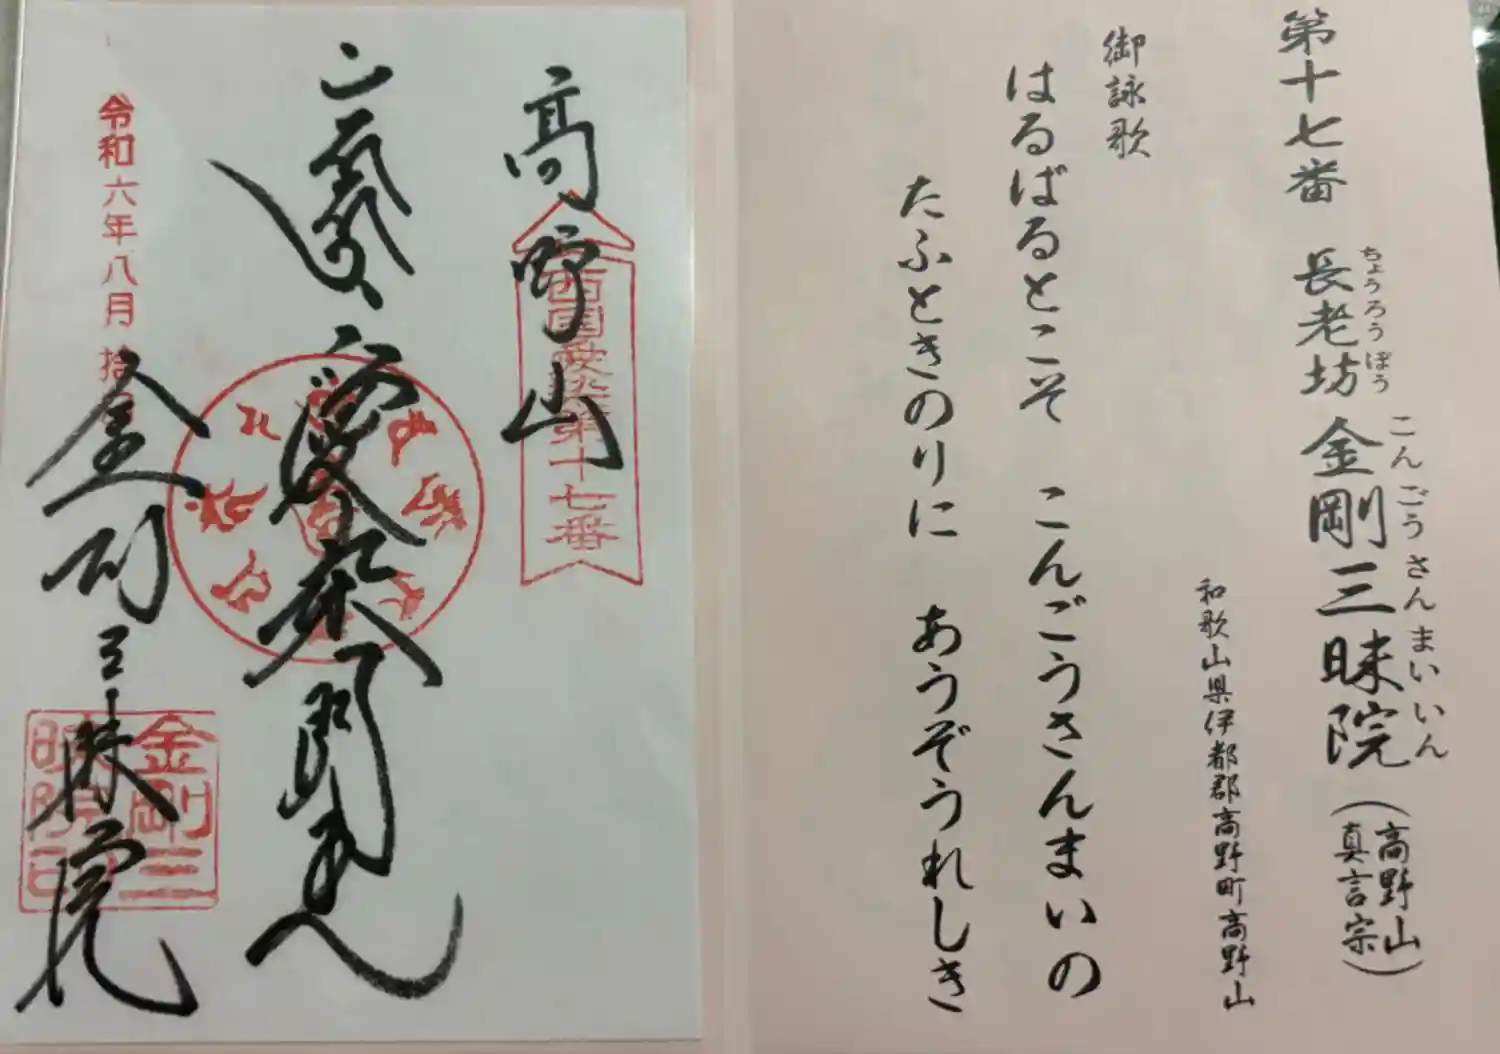 第十七番 長老坊 金剛三昧院(高野山真言宗)
ちょうろうぼう こんごうさんまいいん
和歌山県伊都郡高野町高野山
御詠歌
はるばるとこそ こんごうさんまいの
たふときのりに あうぞうれしき
高野山
西國愛染第十七番
愛染明王
令和六年八月拾
金剛三昧院
金剛三昧院印